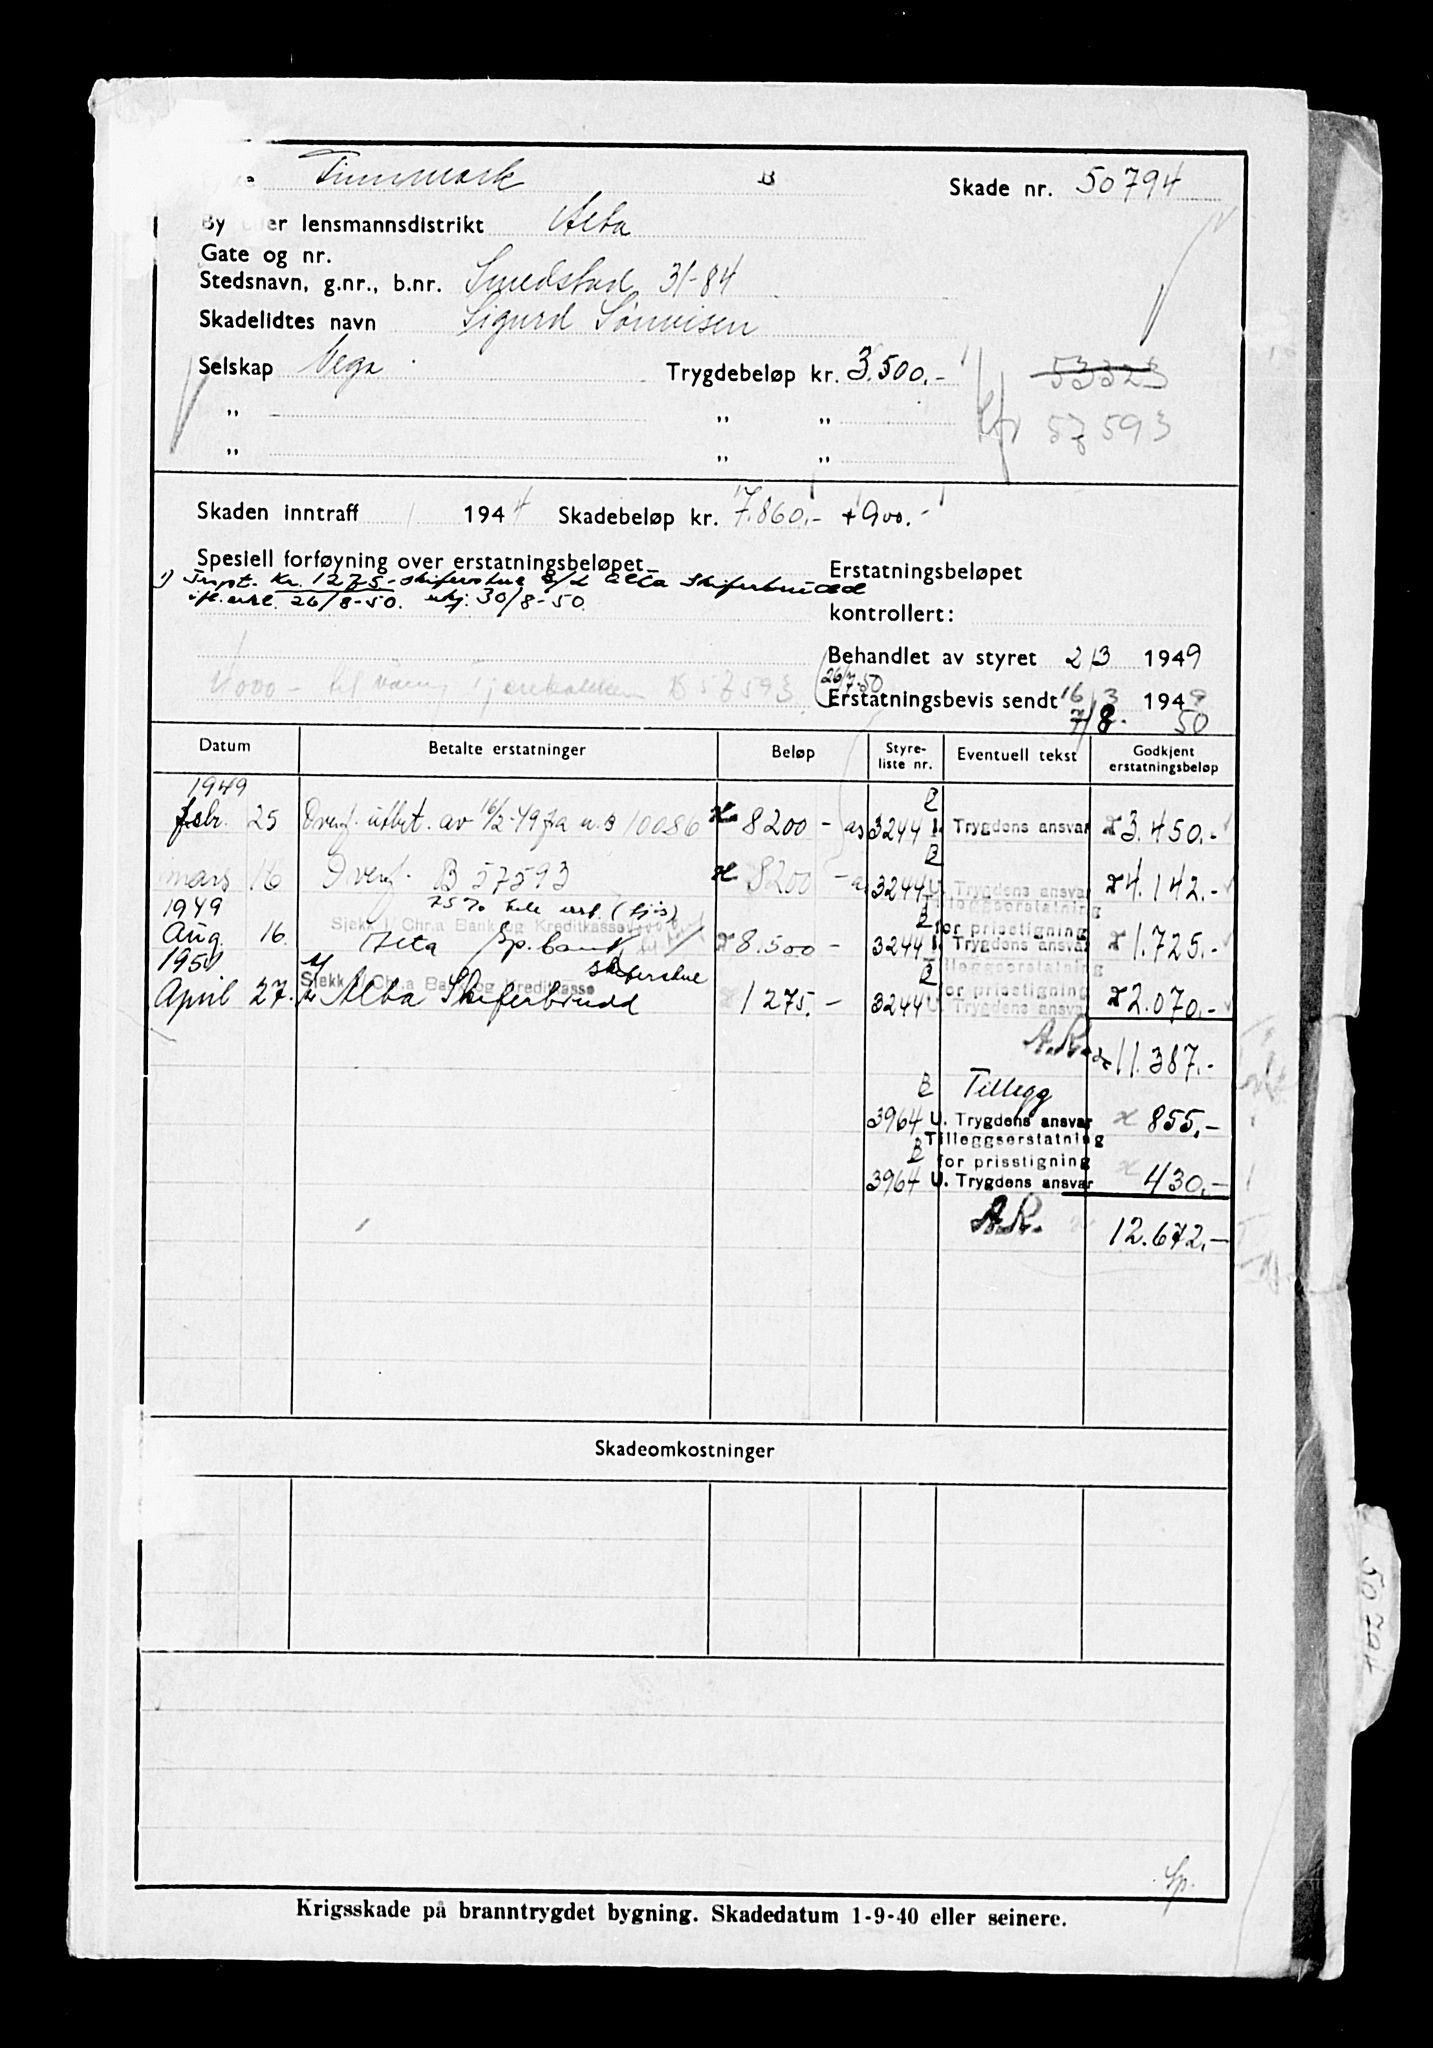 Finnmark B Skade nr. 50794
By eller lensmannsdistrikt Alta
Gate og nr.
Stedsnavn, g.nr., b.nr. Smedstad 31-84
Skadelidtes navn Sigurd
Selskap Vega Trygdebeløp kr. 3.500.- 53323
„ „ „ 57593
„ „ „
Skaden inntraff 1944 Skadebeløp kr. 7.860.- + 900.-
Spesiell forføyning over erstatningsbeløpet Erstatningsbeløpet
1) Kr. 1275.- Alta Skiferbrudd
26/8-50. 30/8-50. kontrollert:
Behandlet av styret 2/3 1949
4000 - til B 57593 26/7-50
Erstatningsbevis sendt 16/3 1949
7/8. 50
Datum Betalte erstatninger Beløp Styre-liste nr. Eventuell tekst Godkjent erstatningsbeløp
1949 B
febr. 25 Overf. utbet. av 16/2-49 fra 10086 8200 - 3244 Trygdens ansvar 3.450.-
B
mars 16 Overf. B 57593 8200 - 3244 U. Trygdens ansvar 4.142.-
1949 75% Tilleggserstatning
Sjekk Chr.a Bank og Kreditkasse B for prisstigning
Aug. 16. Alta Sp.bank 8.500 - 3244 Trygdens ansvar 1.725.-
1950 B Tilleggserstatning
Sjekk Chr.a Bank og Kreditkasse for prisstigning
April 27. Alta Skiferbrudd 1275.- 3244 U. Trygdens ansvar 2.070.-
A.R. 11.387.-
B Tillegg
3964 U. Trygdens ansvar 855.-
Tilleggserstatning
B for prisstigning
3964 U. Trygdens ansvar 430.-
A.R. 12.672.-
Skadeomkostninger
50794
Sp.
Krigsskade på branntrygdet bygning. Skadedatum 1-9-40 eller seinere.